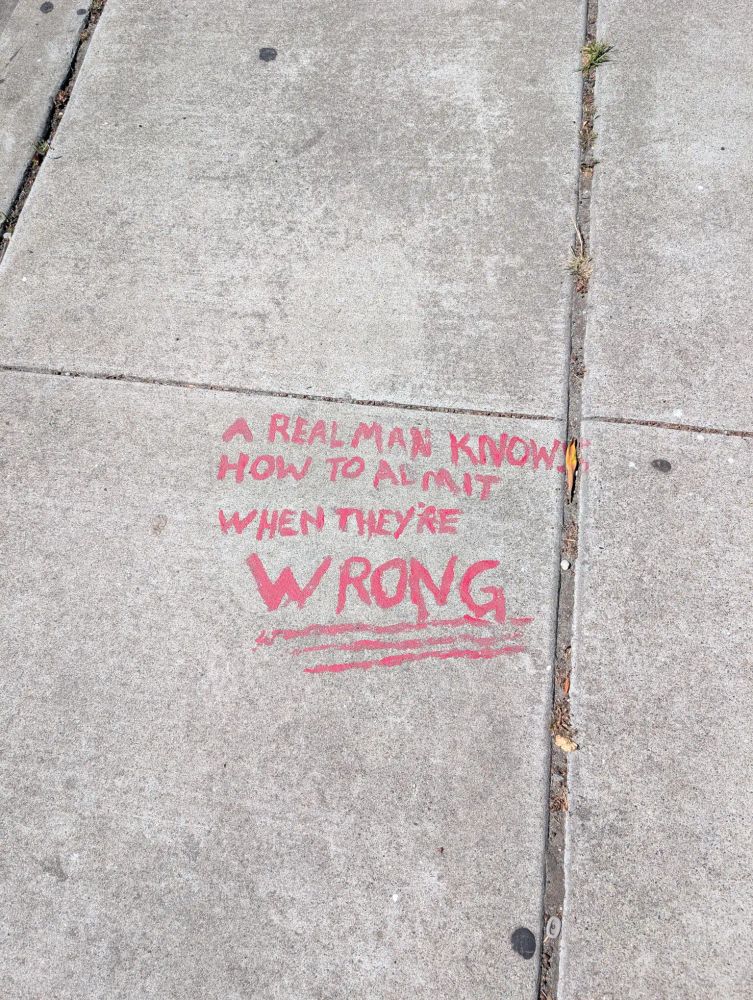 A REAL MAN KNOWS
HOW TO ADMIT
WHEN THEY'RE
WRONG